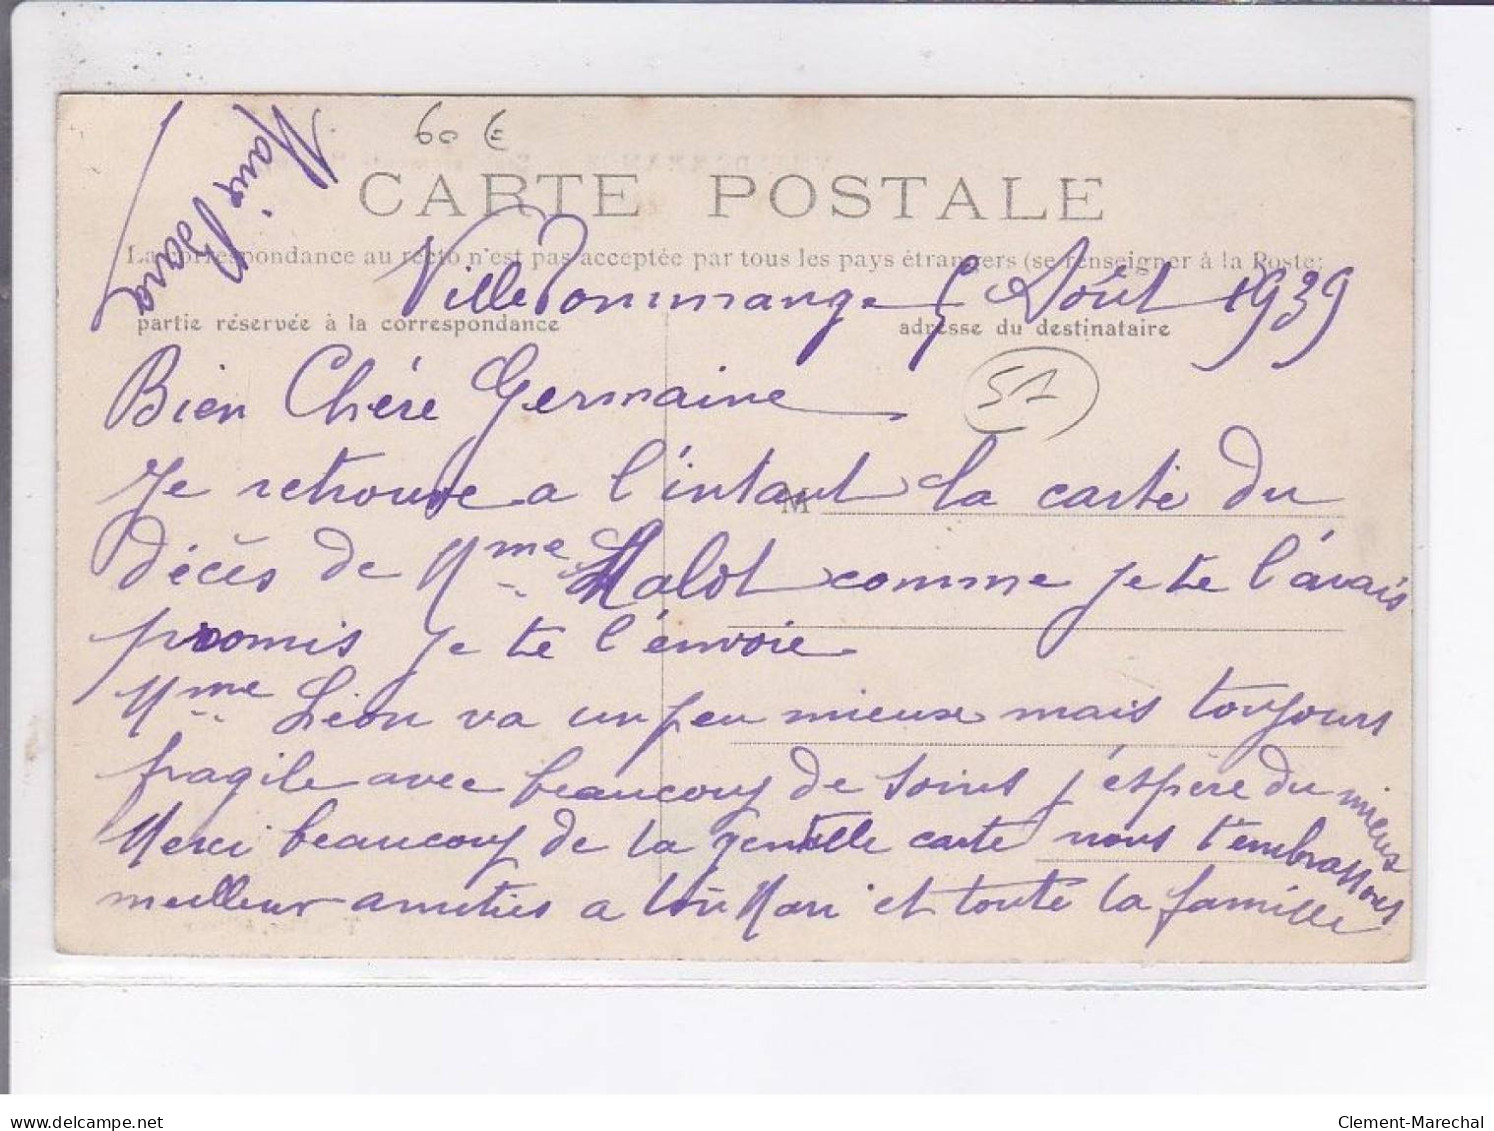 60 €
CARTE POSTALE
La correspondance au recto n'est pas acceptée par tous les pays étrangers (se renseigner à la Poste)
VilleDommange 5 Août 1939
partie réservée à la correspondance
adresse du destinataire
51
Bien Chére Germaine
Je retrouve a l'intant la carte du
M
décès de Mme Malot comme je te l'avais
promis je te l'envoie
Mme Léon va un peu mieux mais toujours
fragile avec beaucoup de soins j'éspère du mieux
Merci beaucoup de la gentille carte nous t'embrassons
meilleur amitiés a ton Mari et toute la famille
delcampe.net
Clement-Marechal